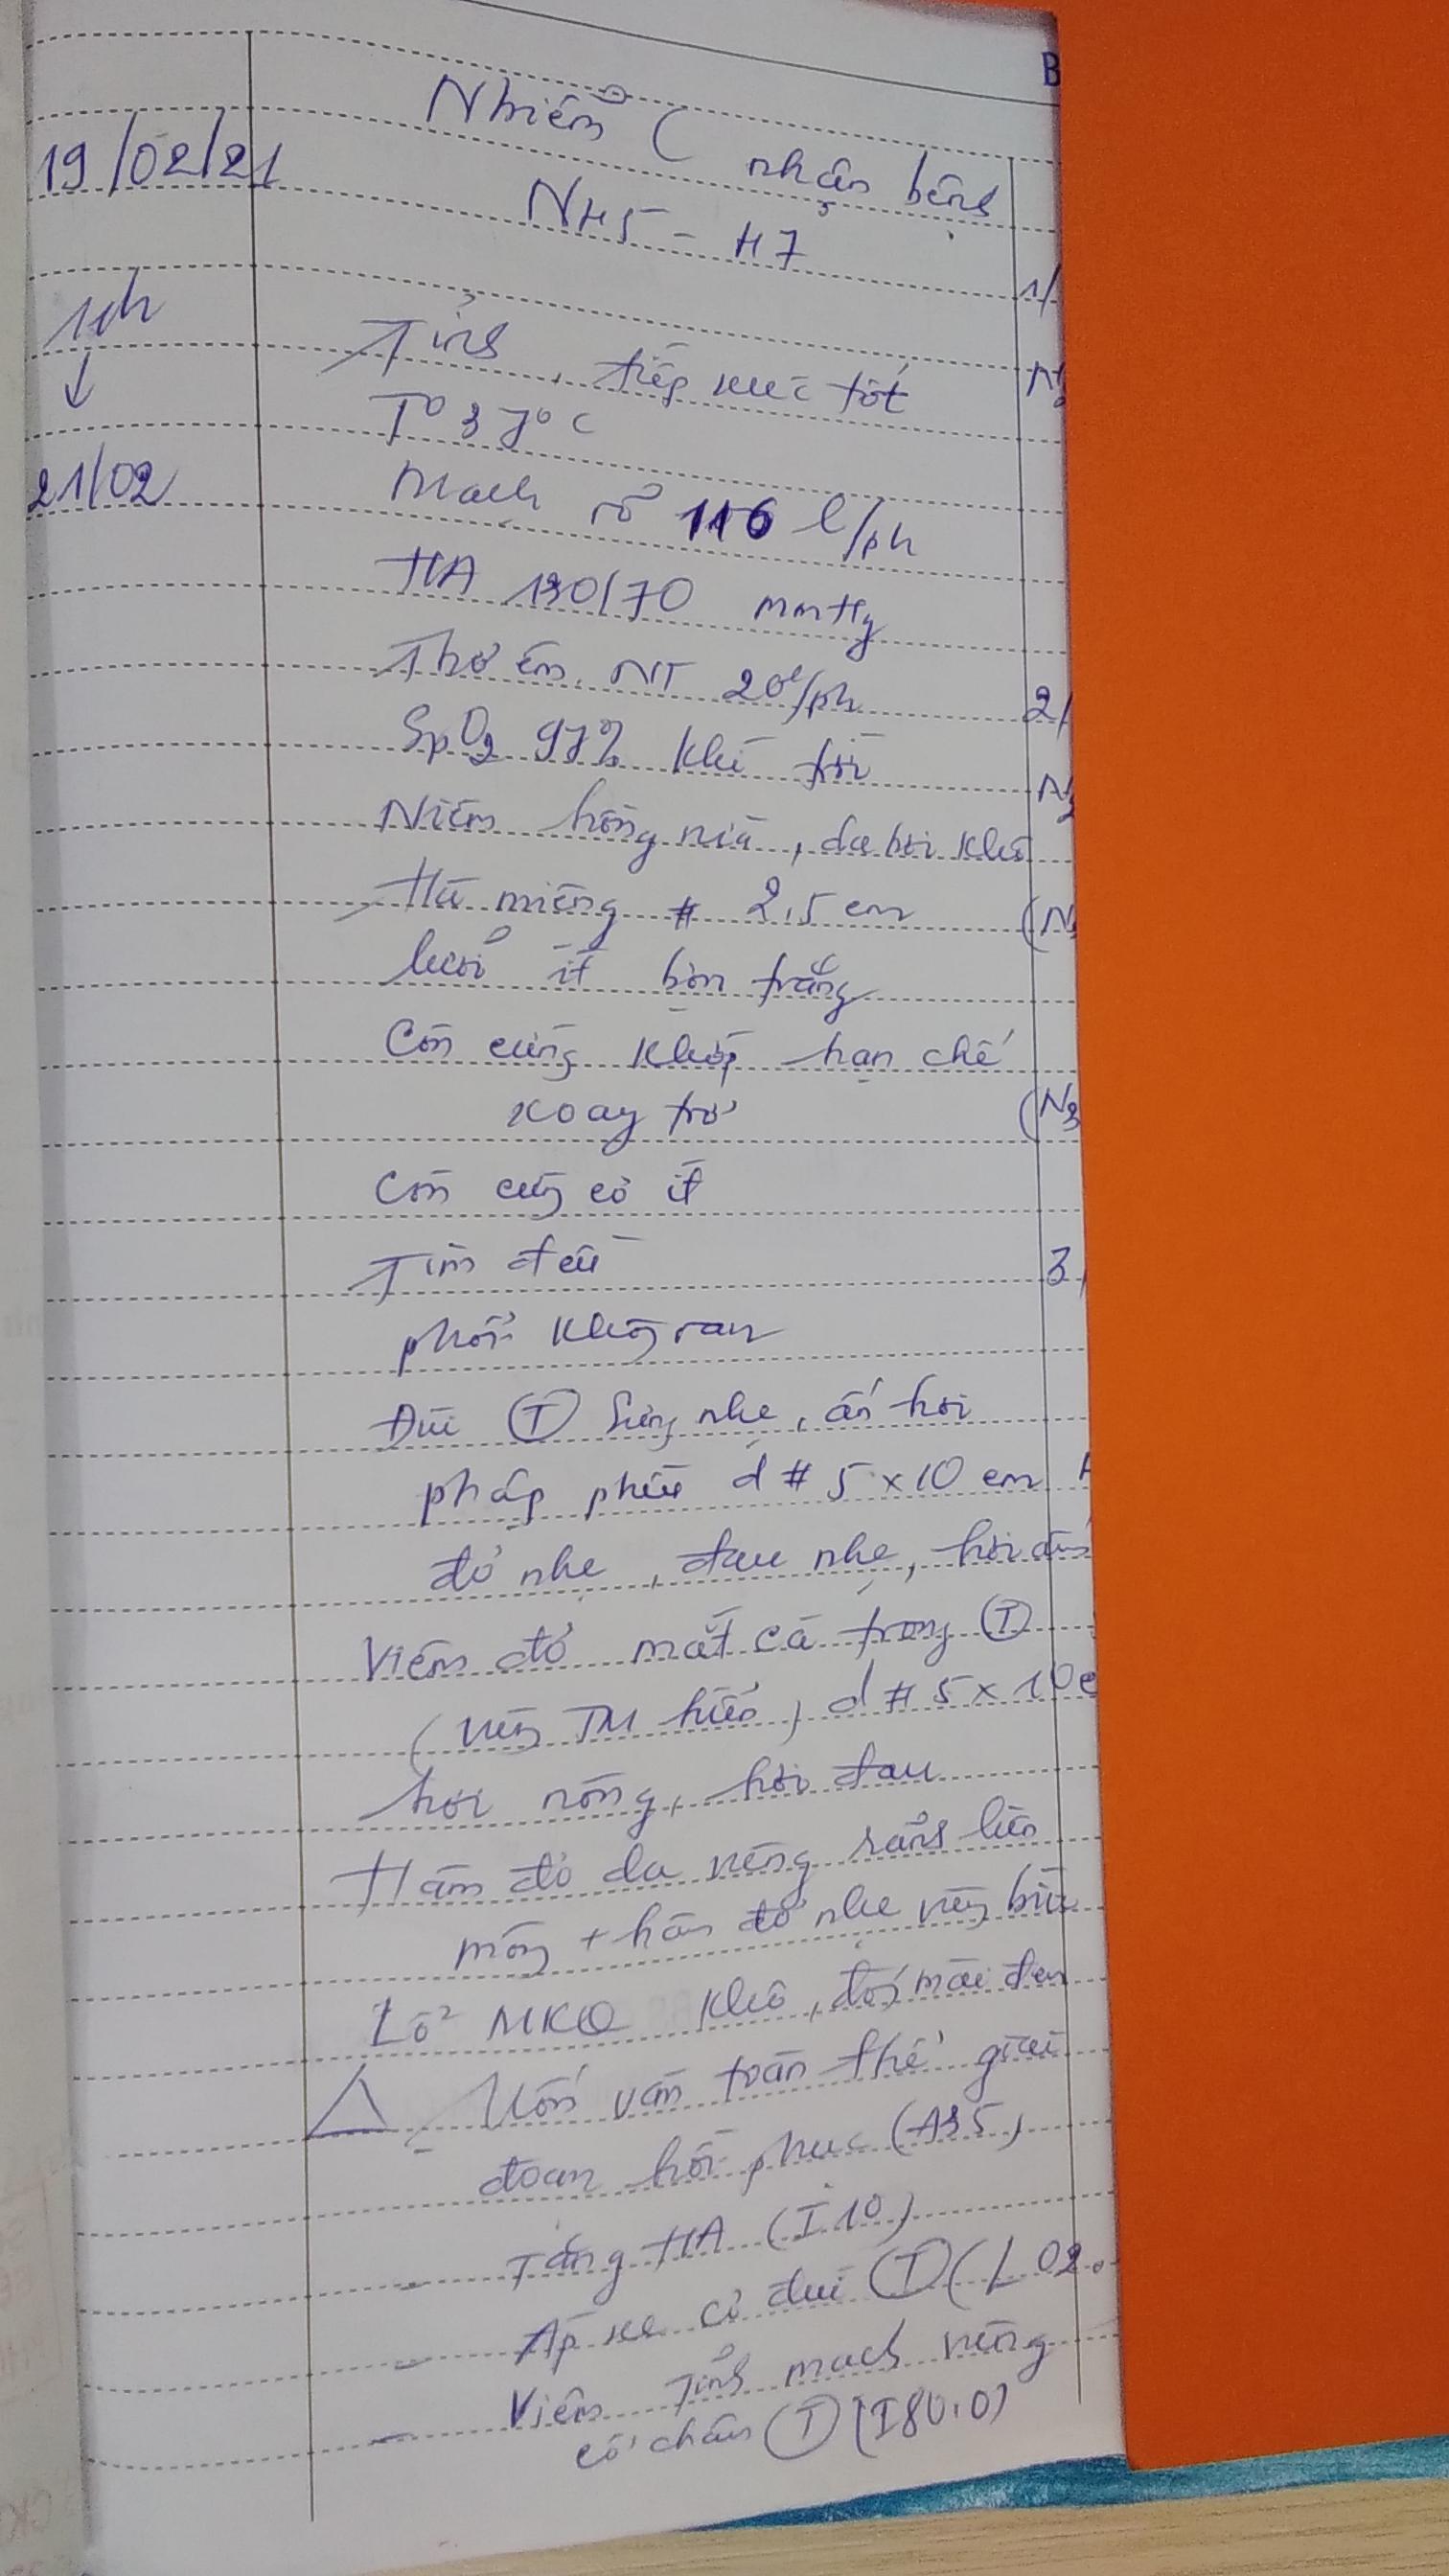 B
Nhiễm C nhận bệnh
19/02/21
NH5 - H7
11h
↓
21/02
Tỉnh, tiếp xúc tốt
T° 37°C
Mạch rõ 116 l/ph
HA 130/70 mmHg
Thở êm, NT 20l/ph
SpO2 97% khí trời
Niêm hồng vừa, da hơi khô
Há miệng # 2,5 cm
lưỡi ít bợn trắng
Còn cứng khớp hạn chế
xoay trở
Còn cứng cơ ít
Tim đều
phổi không ran
Đùi (T) sưng nhẹ, ấn hơi
phập phều d # 5 x 10 cm
đỏ nhẹ, đau nhẹ, hơi ấm
Viêm đỏ mắt cá trong (T)
(vùng TM hiển) d # 5 x 10 c
hơi nóng, hơi đau
Hăm đỏ da vùng rãnh liên
mông + hăm đỏ nhẹ vùng bìu
Lỗ MKQ khô, đóng mài đen
△ - Uốn ván toàn thể giai
đoạn hồi phục (A35)
- Tăng HA (I10)
- Áp xe cơ đùi (T) (L02.
- Viêm tĩnh mạch nông
cổ chân (T) (I80.0)
1/
2/
3